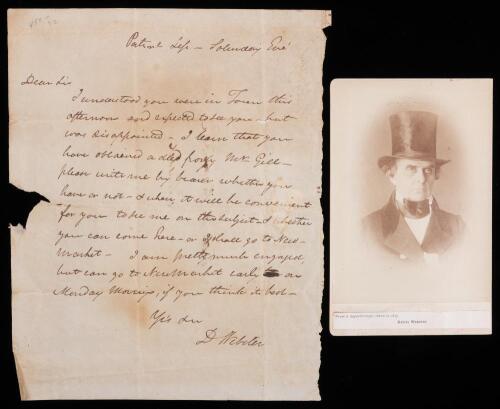 Saturday Eve
Dear Sir
I understood you were in Town this
afternoon and expected to see you - but
was disappointed - I learn that you
have obtained a deed from Mr. Gill -
please write me by bearer whether you
have or not - & when it will be convenient
for you to see me on this subject - & whether
you can come here - or I shall go to New-
Market - I am pretty much engaged,
but can go to New Market early on
Monday Morning, if you think it best -
Yrs
D Webster